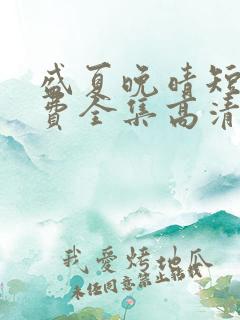 盛夏晚晴短
费全集高清
我爱烤地瓜
未经同意禁止转载